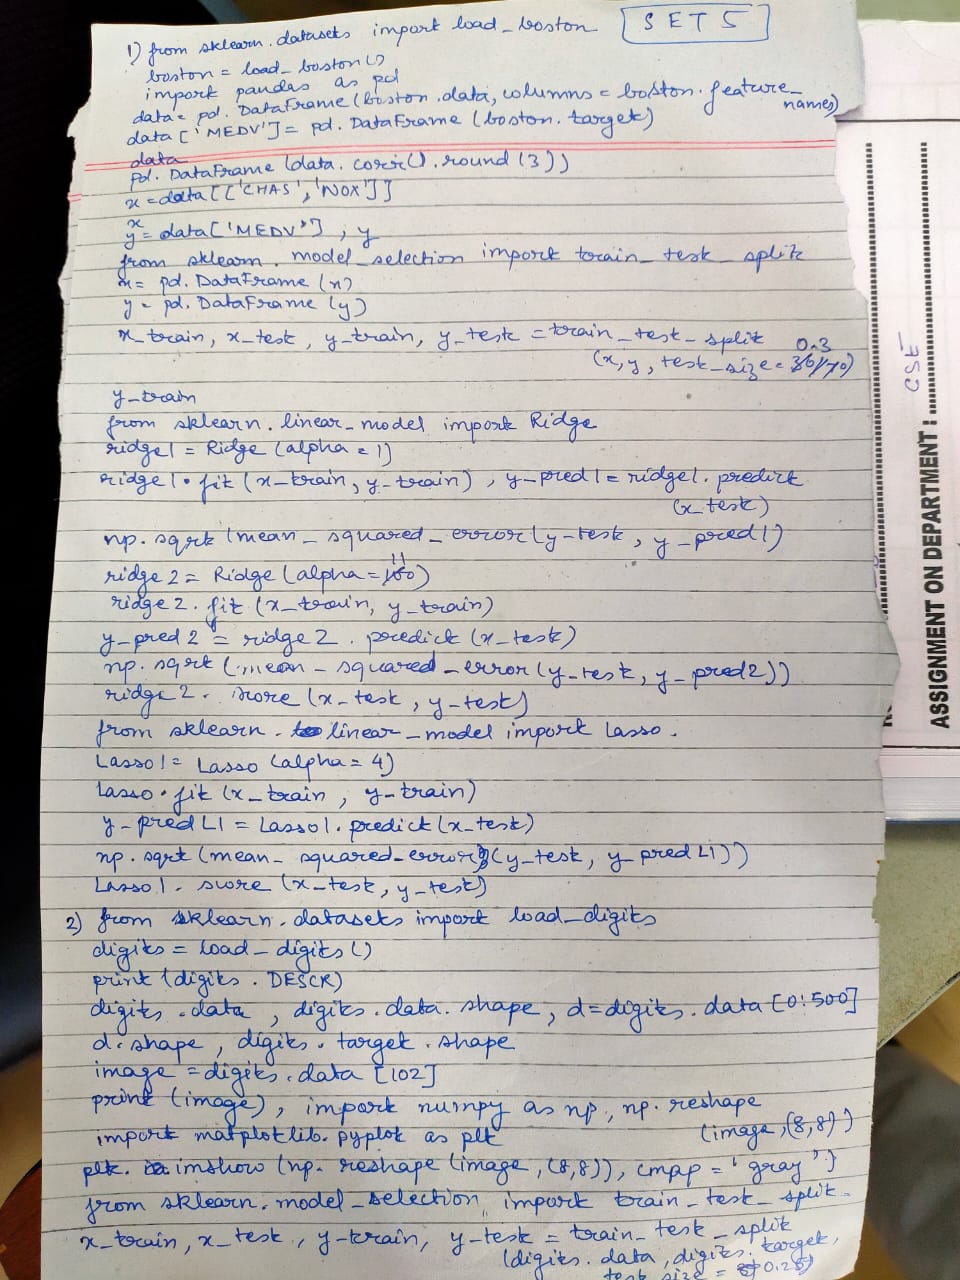 SET 5
1) from sklearn.datasets import load_boston
boston = load_boston()
import pandas as pd
data = pd. DataFrame (boston.data, columns = boston.feature_
names)
data ['MEDV'] = pd. DataFrame (boston. target)
data
pd. DataFrame (data. corr(). round (3))
x = data [['CHAS', 'NOX']]
x
y = data ['MEDV'], y
from sklearn. model_selection import train_test_split
x = pd. DataFrame (x)
y = pd. DataFrame (y)
x_train, x_test, y_train, y_test = train_test_split
0.3
(x, y, test_size = 30/70)
y_train
from sklearn. linear_model import Ridge
ridge1 = Ridge (alpha = 1)
ridge1.fit (x_train, y_train), y_pred1 = ridge1. predict
(x_test)
np. sqrt (mean_squared_error (y_test, y_pred1)
11
ridge 2 = Ridge (alpha = 100)
ridge 2. fit (x_train, y_train)
y_pred 2 = ridge 2. predict (x_test)
np. sqrt (mean_squared_error (y_test, y_pred2))
ridge 2. score (x_test, y_test)
from sklearn. linear_model import Lasso.
Lasso1 = Lasso (alpha = 4)
Lasso.fit (x_train, y_train)
y_pred L1 = Lasso1. predict (x_test)
np. sqrt (mean_squared_error (y_test, y_pred L1))
Lasso1. score (x_test, y_test)
2) from sklearn. datasets import load_digits
digits = load_digits ()
print (digits. DESCR)
digits.data, digits. data. shape, d = digits. data [0:500]
d.shape, digits. target. shape
image = digits. data [102]
print (image), import numpy as np, np. reshape
(image, (8,8))
import matplotlib. pyplot as plt
plt. imshow (np. reshape (image, (8,8)), cmap = 'gray')
from sklearn. model_selection import train_test_split.
x_train, x_test, y_train, y_test = train_test_split
(digits. data, digits. target,
test_size = 0.25)
CSE
ASSIGNMENT ON DEPARTMENT :